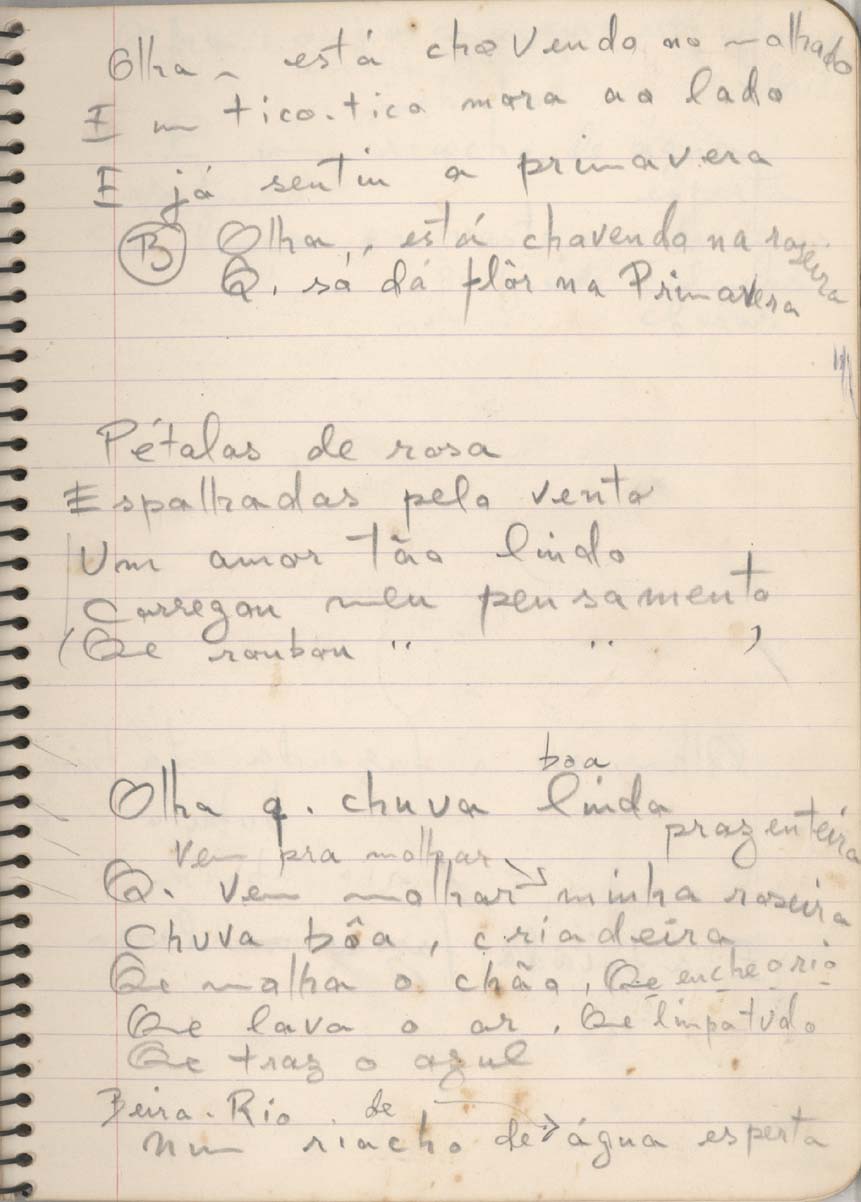 Olha, está chovendo no molhado
E um tico-tico mora ao lado
E já sentiu a primavera
B Olha,, está chovendo na roseira
Q. só dá flôr na Primavera
Pétalas de rosa
Espalhadas pelo vento
Um amor tão lindo
Carregou meu pensamento
(Qe roubou " " )
boa
Olha q. chuva linda prazenteira
Vem pra molhar
Q. vem molhar minha roseira
Chuva bôa, criadeira
Qe molha o chão, Qe enche o rio
Qe lava o ar, Qe limpa tudo
Qe traz o azul
Beira-Rio de
Num riacho de água esperta